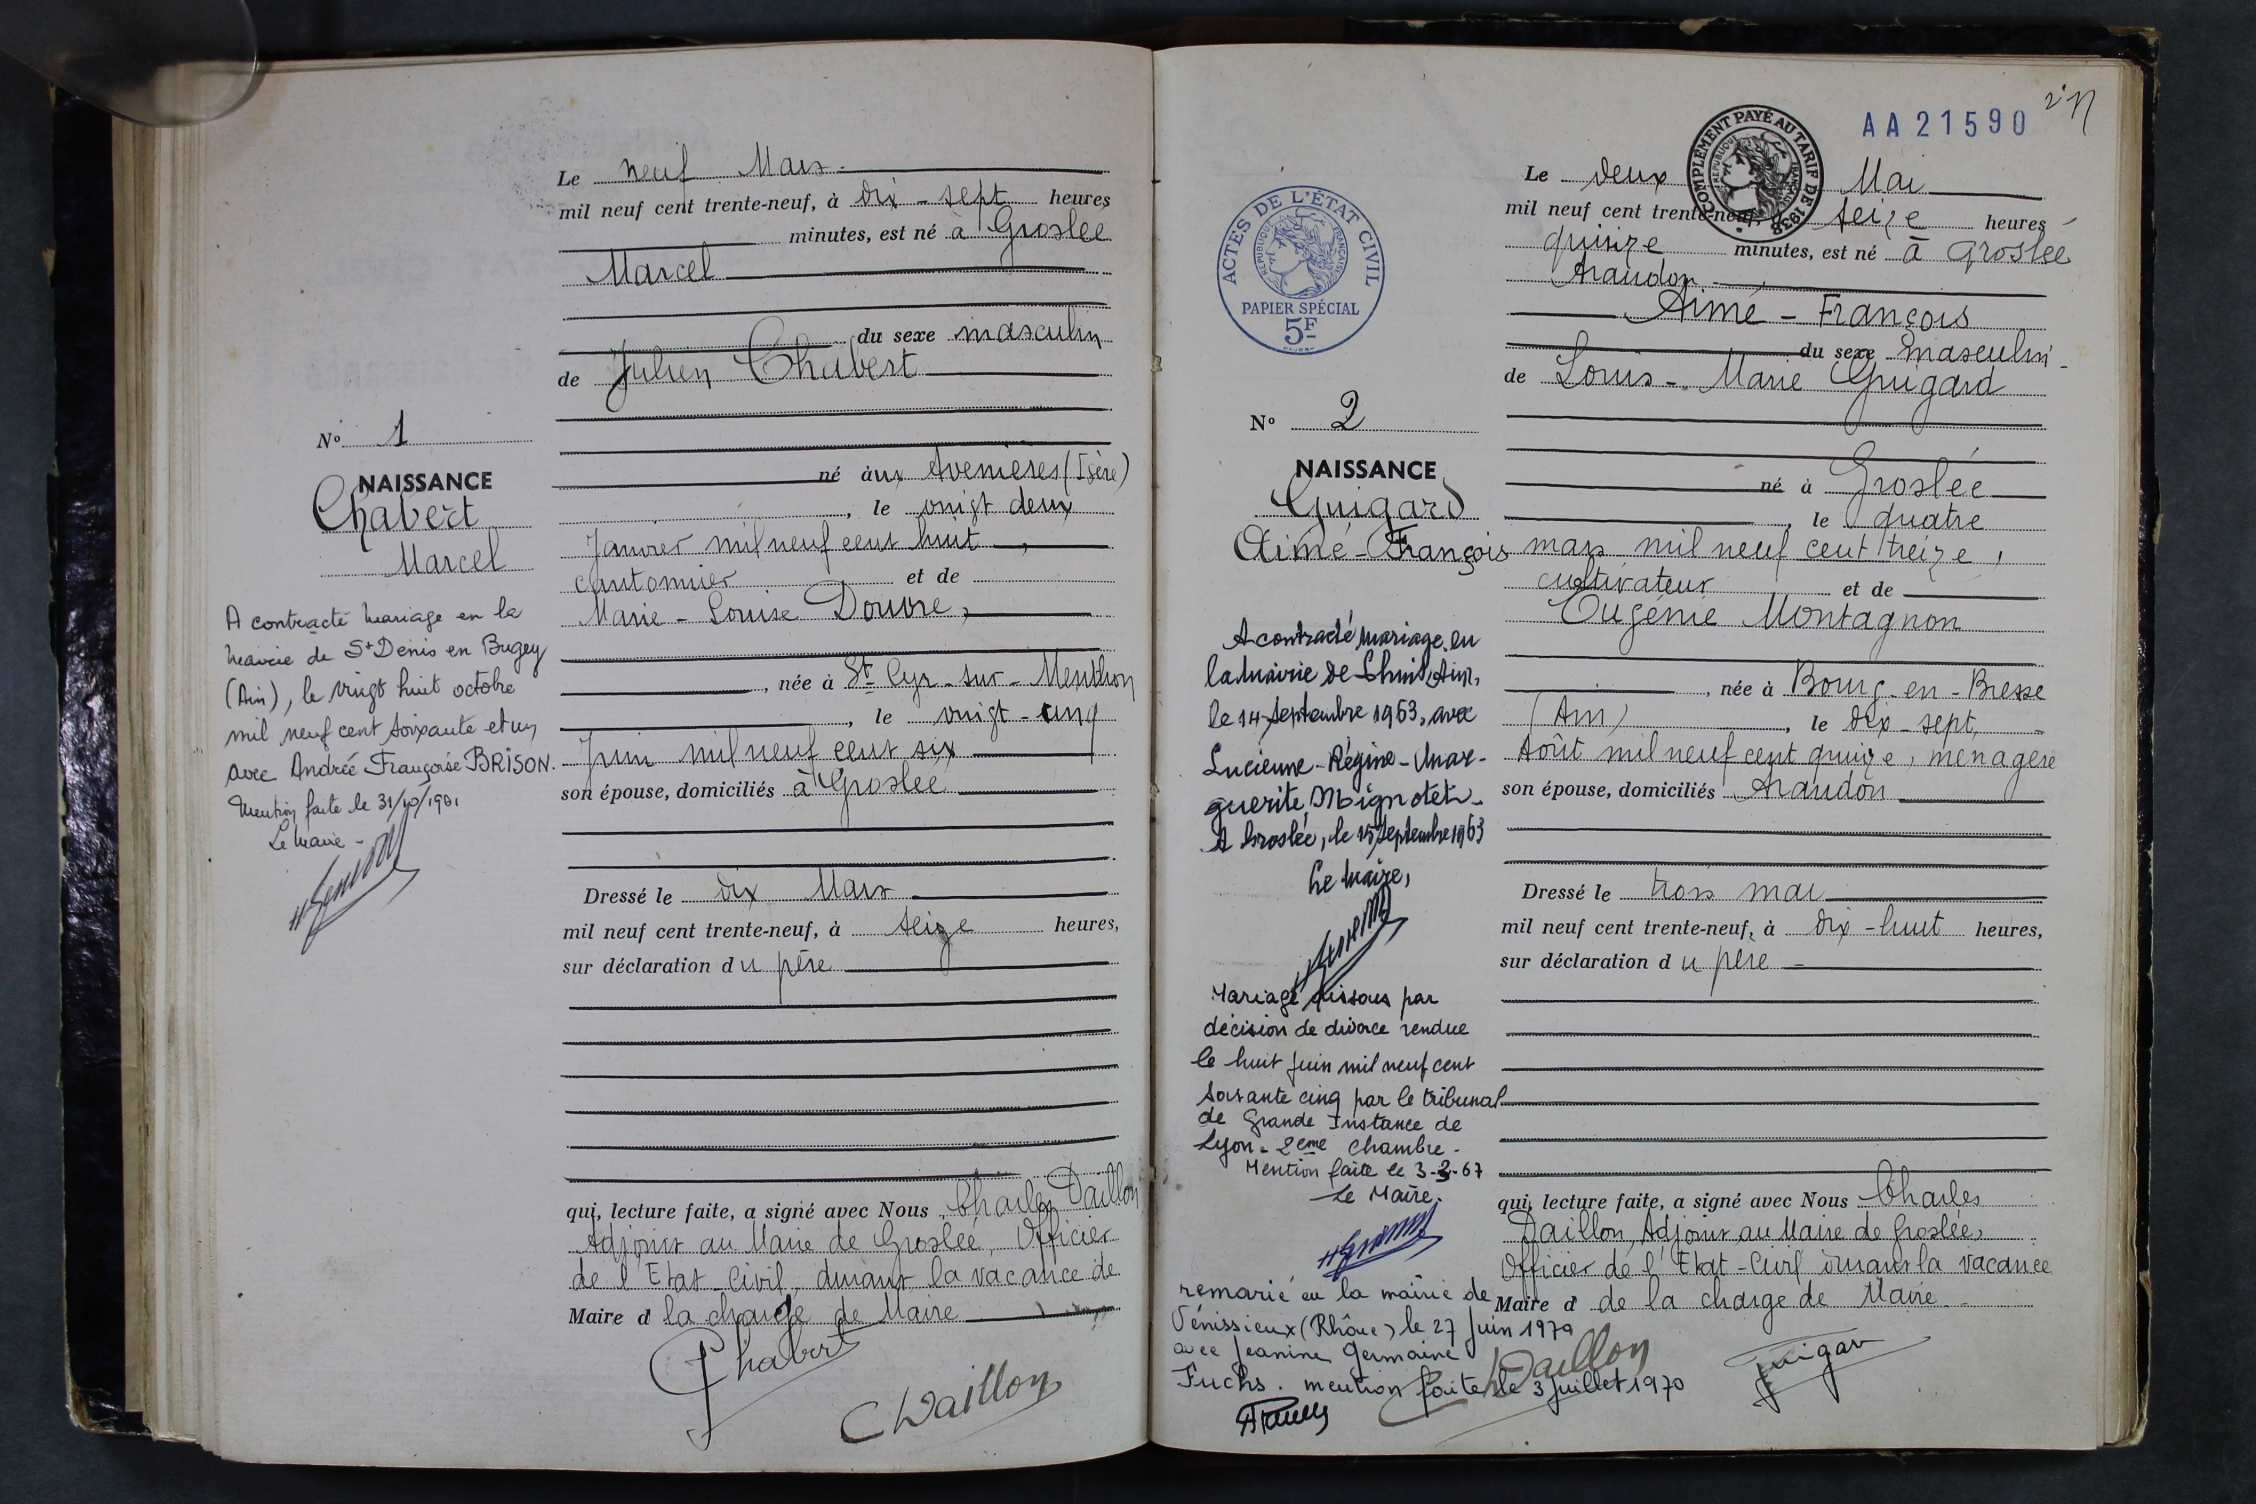 Le neuf Mars
mil neuf cent trente-neuf, à dix-sept heures
minutes, est né à Groslée
Marcel
du sexe masculin
de Julien Chabert
né aux Avenières (Isère)
, le vingt deux
Janvier mil neuf cent huit,
cantonnier et de
Marie-Louise Douvre,
, née à St Cyr-sur-Menthon
, le vingt-cinq
Juin mil neuf cent six
son épouse, domiciliés à Groslée
Dressé le dix Mars
mil neuf cent trente-neuf, à seize heures,
sur déclaration du père
qui, lecture faite, a signé avec Nous Charles Daillon
Adjoint au Maire de Groslée, Officier
de l'Etat-Civil, durant la vacance de
Maire d la charge de Maire
Chabert
CDaillon
No 1
NAISSANCE
Chabert
Marcel
A contracté mariage en la
mairie de St Denis en Bugey
(Ain), le vingt huit octobre
mil neuf cent soixante et un
avec Andrée Françoise BRISON.
Mention faite le 31/10/1961
Le Maire -
AA21590
COMPLÉMENT PAYÉ AU TARIF DE 1938
ACTES DE L'ÉTAT CIVIL
REPUBLIQUE FRANÇAISE
PAPIER SPÉCIAL
5F
Le deux Mai
mil neuf cent trente-neuf, seize heures
quinze minutes, est né à Groslée
Araudon
Aimé-François
du sexe masculin
de Louis-Marie Guigard
né à Groslée
, le quatre
mars mil neuf cent treize,
cultivateur et de
Eugénie Montagnon
, née à Bourg-en-Bresse
(Ain) , le dix-sept,
Août mil neuf cent quinze, ménagère
son épouse, domiciliés Araudon
Dressé le trois mai
mil neuf cent trente-neuf, à dix-huit heures,
sur déclaration du père
qui, lecture faite, a signé avec Nous Charles
Daillon, Adjoint au Maire de Groslée,
Officier de l'Etat-Civil durant la vacance
Maire d de la charge de Maire
CDaillon
Guigar
No 2
NAISSANCE
Guigard
Aimé-François
A contracté mariage en
la mairie de Lhuis, Ain,
le 14 Septembre 1963, avec
Lucienne-Régine-Mar-
guerite Mignotet.
A Groslée, le 15 Septembre 1963
Le Maire,
Mariage dissous par
décision de divorce rendue
le huit juin mil neuf cent
soixante cinq par le tribunal
de Grande Instance de
Lyon - 2eme Chambre.
Mention faite le 3-3-67
Le Maire.
remarié en la mairie de
Vénissieux (Rhône) le 27 Juin 1970
avec Jeanine Germaine
Fuchs. mention faite le 3 Juillet 1970